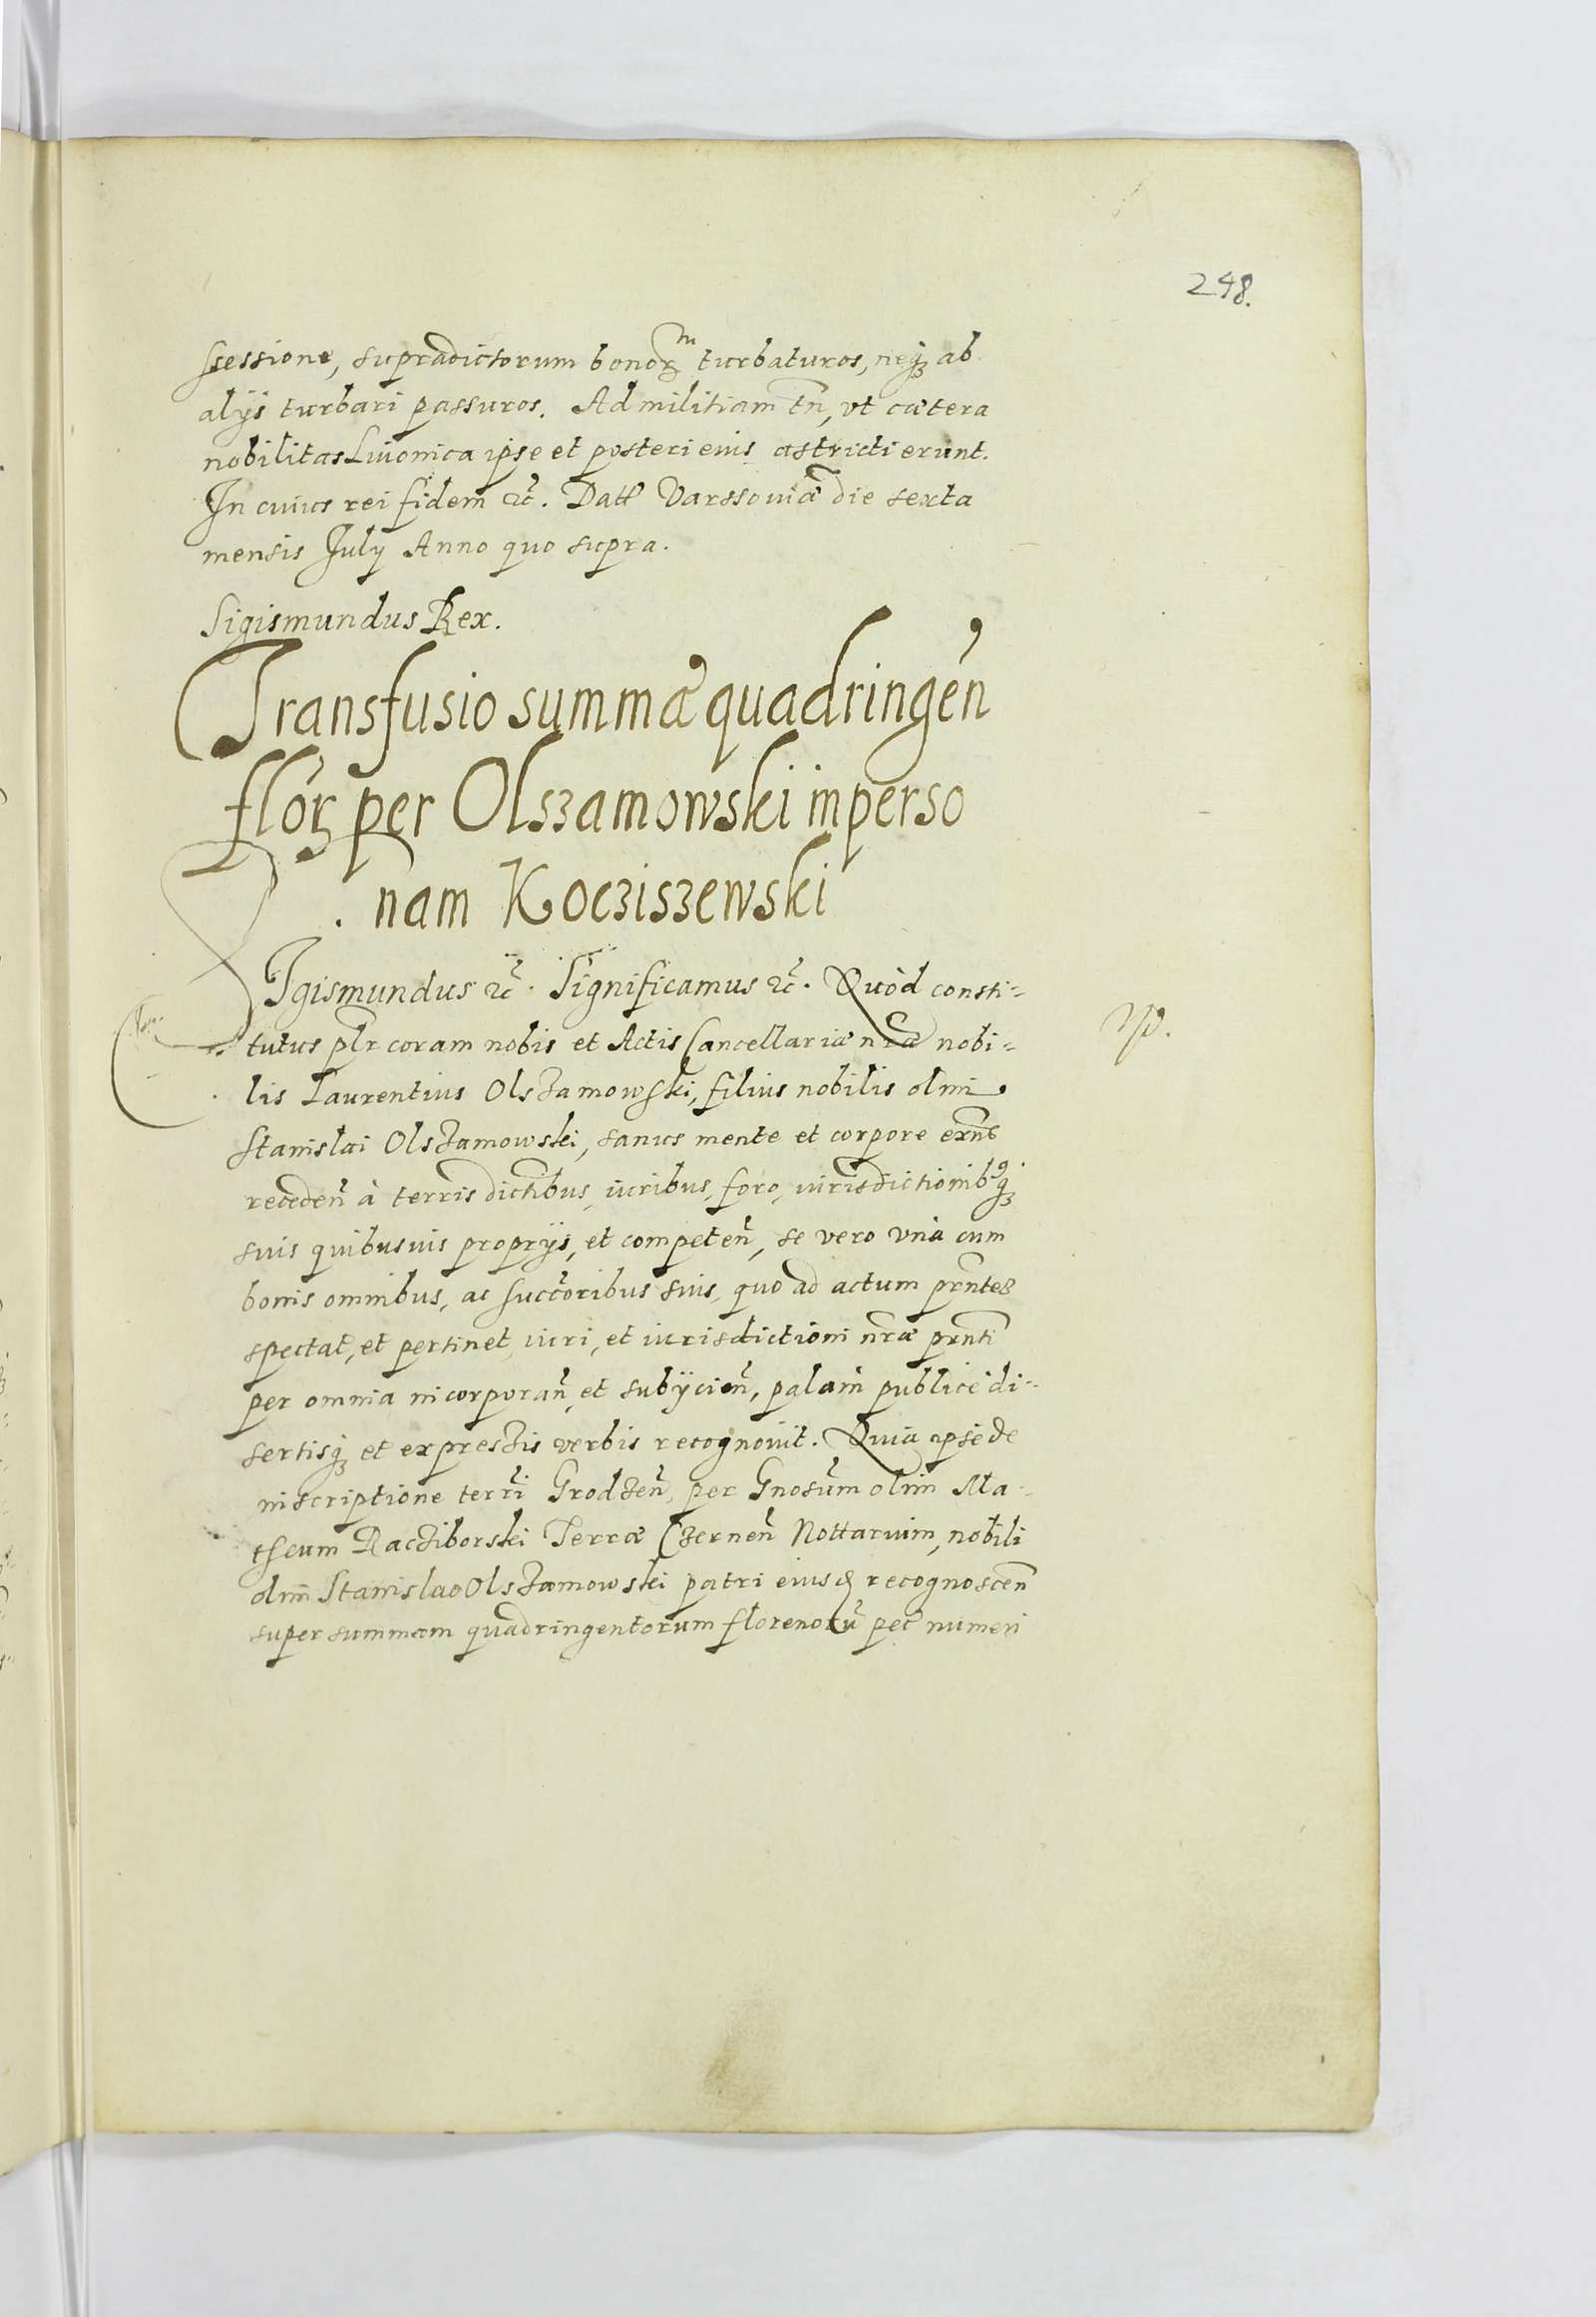 248.
ssessione, supradictorum bonorꝫ turbaturos, neqꝫ ab
alijs turbari passuros. Ad militiam tñ, vt cætera
nobilitas Liuonica ipse et posteri eius astricti erunt.
In cuius rei fidem ⁊c̃. Datt Varssouiæ die sexta
mensis July Anno quo supra.
Sigismundus Rex.
Transfusio summæ quadringen̄
florꝫ per Olszamowski in perso
nam Kocziszewski
SIgismundus ⁊c̃. Significamus ⁊c̃. Quòd consti=
tutus plr̃ coram nobis et Actis Cancellariæ nr̃æ nobi=
lis Laurentius Olszamowski, filius nobilis olim
Stanislai Olszamowski, sanus mente et corpore exñs
receden̄ à terris dictibus, iuribus, foro, iurisdictionibꝰqꝫ
suis quibusuis proprijs, et competen̄, se vero vnà cum
bonis omnibus, ac succ̃oribus suis, quo ad actum prñtes
spectat, et pertinet, iuri, et iurisdictioni nr̃æ prñti
per omnia incorporan̄, et subijcien̄, palàm publicè di=
sertisqꝫ et expressis verbis recognouit. Quia ipse de
inscriptione terri Grodzen̄, per Gnosum̄ olim Ma-
theum Racziborski Terræ Czernen̄ Nottarium, nobili
olim Stanislao Olszamowski patri eiusd recognoscen̄
super summam quadringentorum florenorū pec̃ numeri